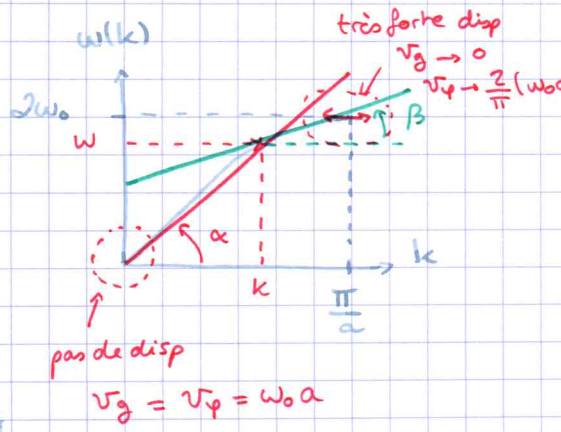 très forte disp
ω(k)
v_g → 0
v_φ → 2/π (ω₀
2ω₀
β
ω
α
k
k
π/a
pas de disp
v_g = v_φ = ω₀a